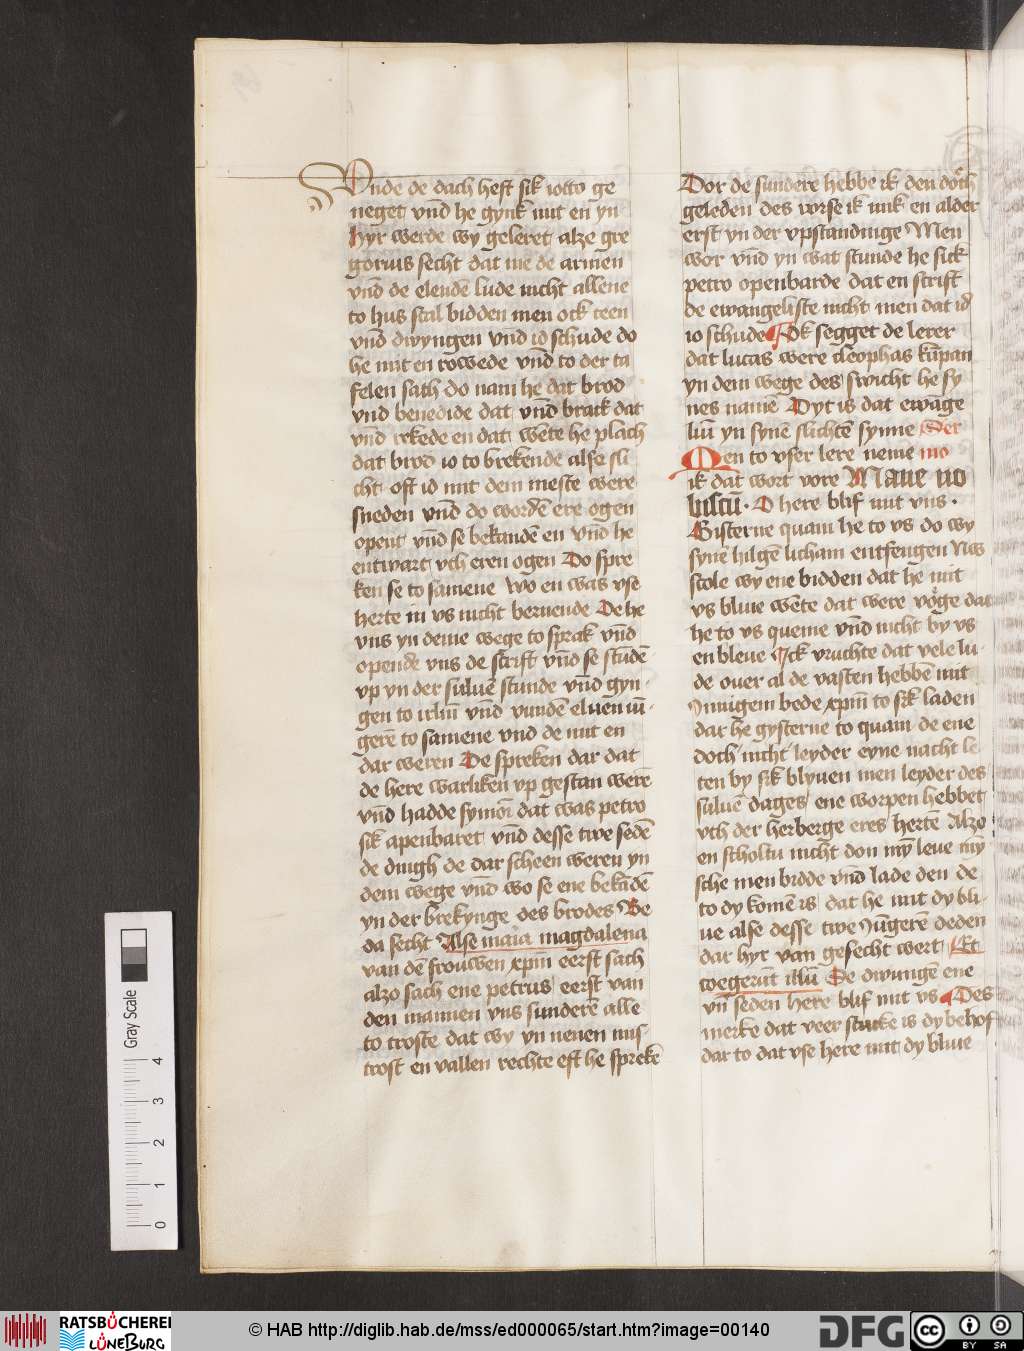 Vnde de dach heft sik iotto ge
neget vn̄d he gynk mit en yn
Hyr werde wy geleret alze gre
gorius secht dat me de armen
vn̄d de elendē lude nicht allene
to hus scal bidden men ock teen
vn̄d dwyngen vn̄d id schude do
he mit en rowede vn̄d to der ta
felen sath do nam he dat brod
vnd benedide dat vn̄d brack dat
vn̄d rekede en dat wēte he plach
dat brod io to brekende alse sli
cht oft id mit dem meste were
sneden vn̄d do wordē ere ogen
opent vn̄d se bekandē en vn̄d he
entwart vth eren ogen Do spre
ken se to samene Wo en was vse
herte in vs nicht bernende De he
vns yn deme wege to sprak vn̄d
opende vns de scrift vn̄d se stūdē
vp yn der suluē stunde vn̄d gyn
gen to irlm̄ vn̄d vundē eluen iū
gerē to samene vnd de mit en
dar weren De spreken dar dat
de here warliken vp gestan were
vn̄d hadde symōi dat was petro
sik apenbaret vn̄d desse twe sedē
de dingh de dar scheen weren yn
dem wege vn̄d wo se ene bekādē
yn der brekynge des brodes Be
da secht Alse maia magdalena
van dē frouwen xpm̄ eerst sach
alzo sach ene petrus eerst van
den mannen vns sunderē alle
to troste dat wy yn nenen mis
trost en vallen rechte eft he sprekē
Dor de sundere hebbe ik den doͤth
geleden des vorse ik mik en alder
erst yn der vpstandinge Men
wor vn̄d yn wat stunde he sick
petro openbarde dat en scrift
de ewangeliste nicht men dat id
io schude Ok segget de lerer
dat lucas were cleophas kūpan
yn dem wege des swicht he sy
nes namē Dyt is dat ewāge
liū yn synē slichtē synne
Men to vser lere neme
ik dat wort vore Mane no
biscū. O here blif mit vns.
Gisterne quam he to vs do wy
synē hilgē licham entfengen Nw
scole wy ene bidden dat he mit
vs bliue wēte dat were voͤge dat
he to vs queme vn̄d nicht by vs
en bleue Ick vruchte dat vele lu
de ouer al de vasten hebbē mit
ynnigem bede xpm̄ to sik laden
dar he gysterne to quam de ene
doch nicht leyder eyne nacht le
ten by sik blyuen men leyder des
suluē dages ene worpen hebbet
vth der herberge eres hertē Alzo
en scholtu nicht don my̅ leue my̅
sche men bidde vn̄d lade den de
to dy komē is dat he mit dy bli
ue alse desse twe yūgerē deden
dar hyr van gesecht wert Et
coegerūt illū De dwungē ene
vn̄ seden here blif mit vs Des
merke dat veer stucke is dy behof
dar to dat vse here mit dy bliue
Gray Scale
4
3
2
1
0
RATSBÜCHEREI
LÜNEBURG
© HAB http://diglib.hab.de/mss/ed000065/start.htm?image=00140
DFG
cc
BY SA